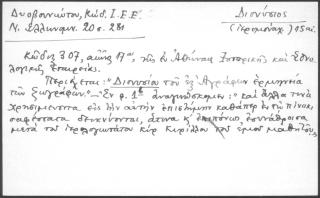 Δυοβουνιώτου, Κώδ. Ι.Ε.Ε.
Ν. Ἑλληνομν. 20 σ. 281
Διονύσιος
(Ἱερομόναχ.) 15αι.
Κώδιξ 307, αἰῶν. 17ου, τῆς ἐν Ἀθήναις Ἱστορικῆς καὶ Ἐθνο-
λογικῆς Ἑταιρείας.
Περιέχει: "Διονυσίου τοῦ ἐξ Ἀγράφων ἑρμηνεία
τῶν ζωγράφων." – Ἐν φ. 1β ἀναγινώσκομεν: "καὶ ἄλλα τινα
χρησιμεύοντα εἰς τὴν αὐτὴν ἐπιστήμην καθάπερ ἐν τῷ πίνακι
σαφέστατα δείκνυνται, ἅτινα κ' ἐσυνάθροισα
μετὰ τοῦ κὺρ Κυρίλλου τοῦ ἐμοῦ μαθητοῦ,